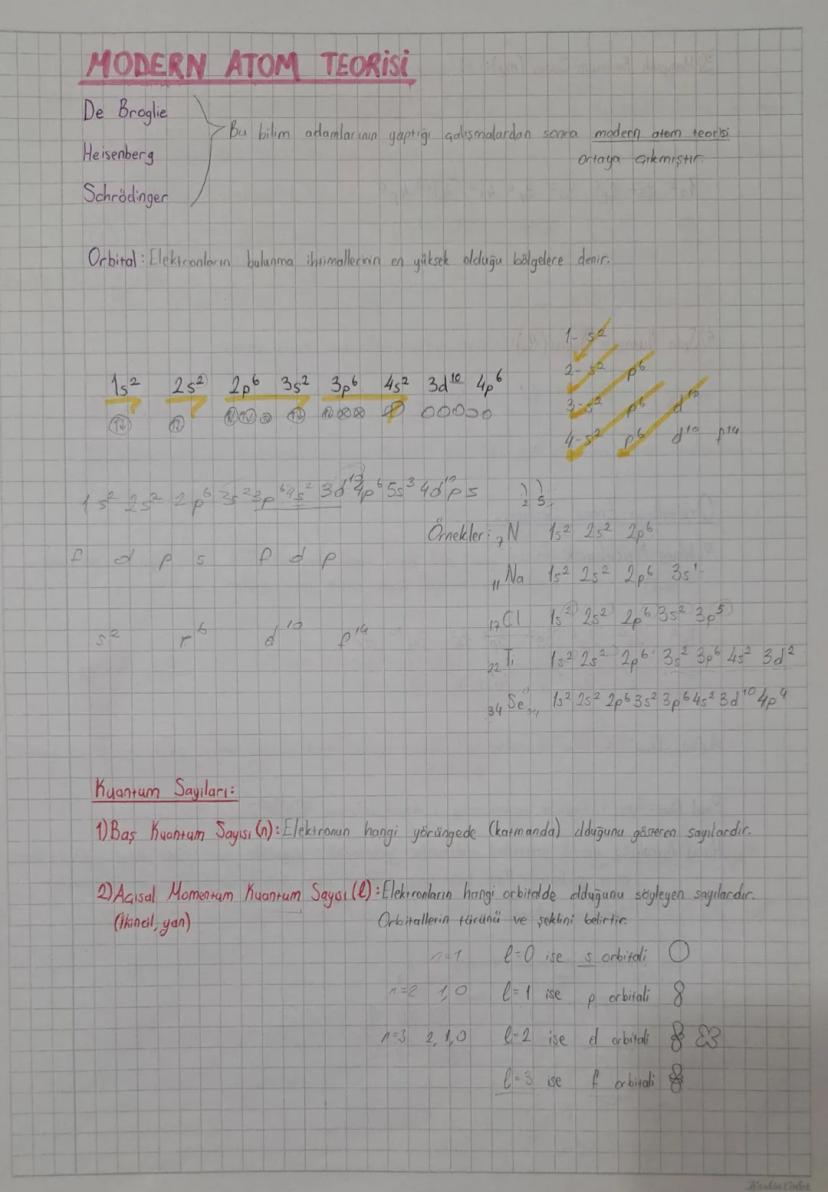 MODERN ATOM TEORİSİ
De Broglie
Heisenberg
Schrödinger
Bu bilim adamlarının yaptığı çalışmalardan sonra modern atom teorisi
ortaya çıkmıştır.
Orbital: Elektronların bulunma ihtimallerinin en yüksek olduğu bölgelere denir.
1- s²
2- s² p⁶
3- s² p⁶ d¹⁰
4- s² p⁶ d¹⁰ f¹⁴
1s² 2s² 2p⁶ 3s² 3p⁶ 4s² 3d¹⁰ 4p⁶
1s² 2s² 2p⁶ 3s² 3p⁶ 4s² 3d¹⁰ 4p⁶ 5s³ 4d¹⁰ p s
Örnekler: ₇N 1s² 2s² 2p⁶
f d p s f d p
₁₁Na 1s² 2s² 2p⁶ 3s¹
₁₇Cl 1s² 2s² 2p⁶ 3s² 3p⁵
s² p⁶ d¹⁰ f¹⁴
₂₂Ti 1s² 2s² 2p⁶ 3s² 3p⁶ 4s² 3d²
₃₄Se 1s² 2s² 2p⁶ 3s² 3p⁶ 4s² 3d¹⁰ 4p⁴
Kuantum Sayıları:
1) Baş Kuantum Sayısı (n): Elektronun hangi yörüngede (katmanda) olduğunu gösteren sayılardır.
2) Açısal Momentum Kuantum Sayısı (ℓ): Elektronların hangi orbitalde olduğunu söyleyen sayılardır.
(İkincil, yan) Orbitallerin türünü ve şeklini belirtir.
n=1 ℓ=0 ise s orbitali
n=2 1,0 ℓ=1 ise p orbitali
n=3 2,1,0 ℓ=2 ise d orbitali
ℓ=3 ise f orbitali